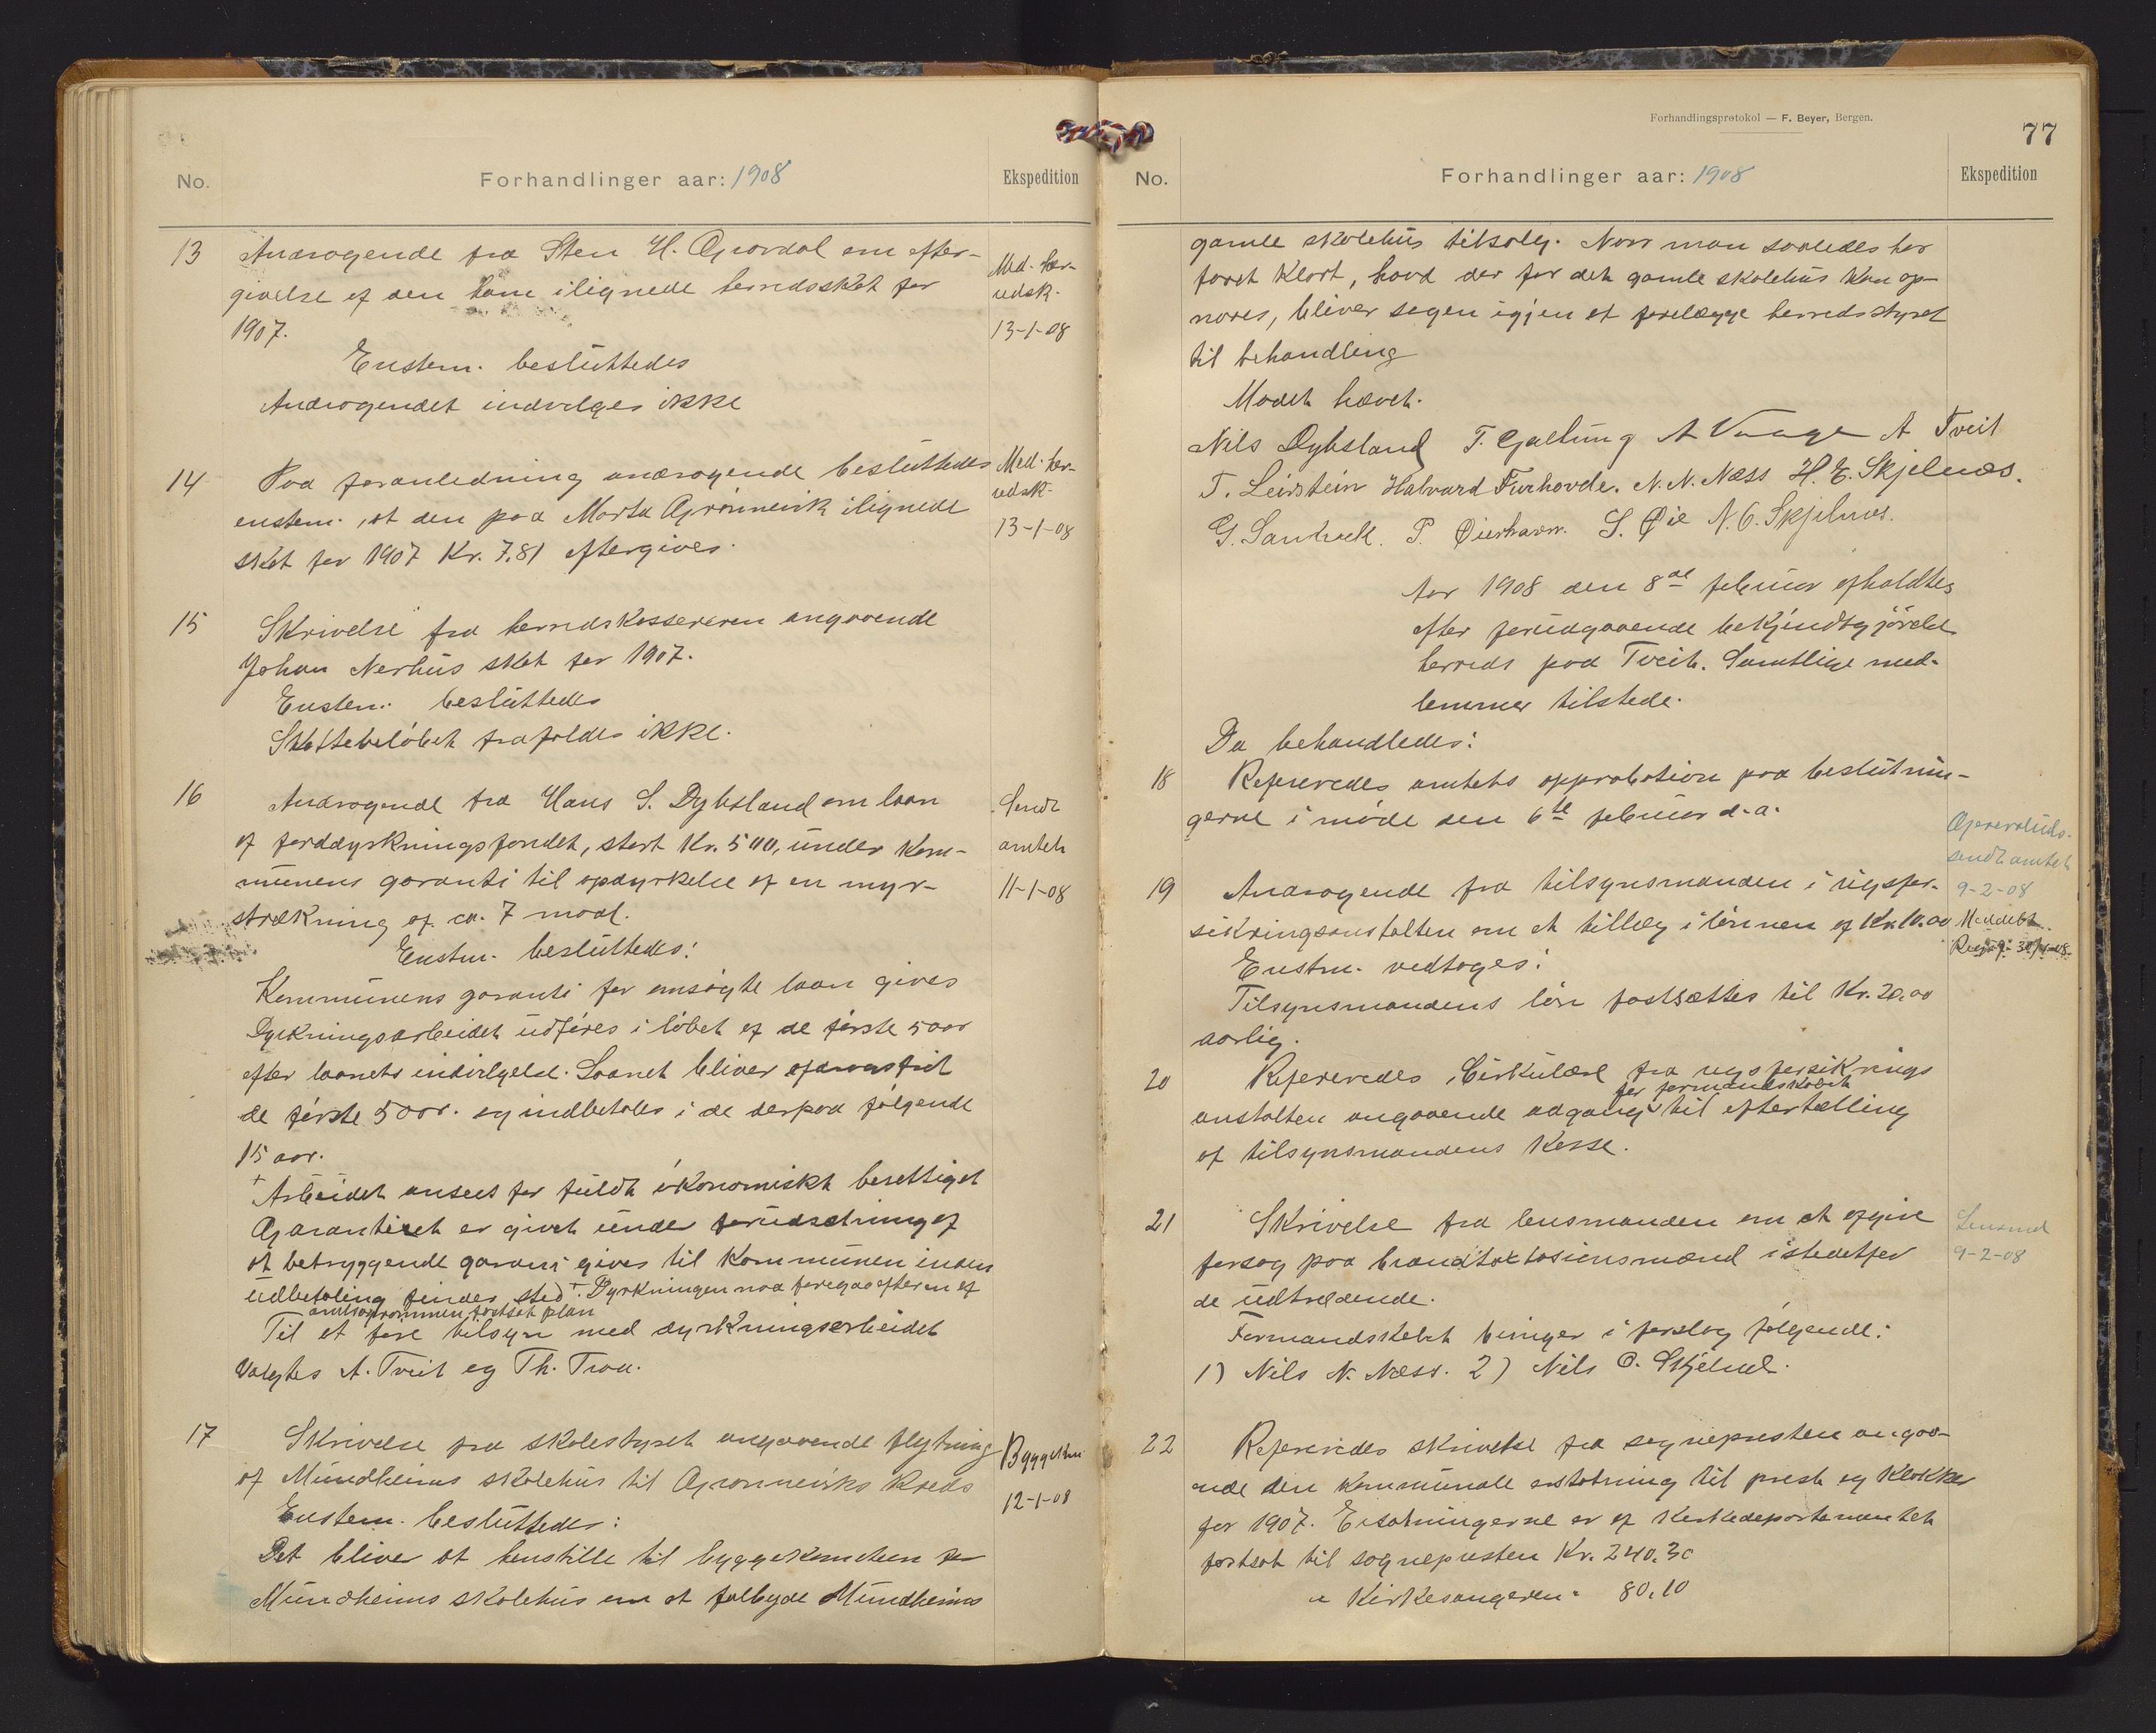 No.
Forhandlinger aar: 1908
Ekspedition
13
Andragende fra Sten H. Gravdal om efter-
givelse af den ham ilignede herredsskat for
1907.
Enstem. besluttedes
Andragendet indvilges ikke
Med. her-
redsk.
13-1-08
14
Paa foranledning andragende besluttedes
enstem. at den paa Marta Grønnevik ilignede
skat for 1907 Kr. 7,81 eftergives.
Med. her-
redsk.
13-1-08
15
Skrivelse fra herredskassereren angaaende
Johan Nerhus skat for 1907.
Enstem. besluttedes
Skattebeløbet frafaldes ikke.
16
Andragende fra Hans S. Dybsland om laan
af jorddyrkningsfondet, stort Kr. 500, under kom-
munens garanti til opdyrkelse af en myr-
strækning af ca. 7 maal.
Enstm. besluttedes:
Kommunens garanti for ansøgte laan gives
Dyrkningsarbeidet udføres i løbet af de første 5 aar
efter laanets indvilgelse. Laanet bliver afdragsfrit
de første 5 aar. og indbetales i de derpaa følgende
15 aar.
+ Arbeidet ansees for fuldt økonomiskt berettiget
Garantiet er givet under forudsætning af
at betryggende garanti gives til kommunen inden
udbetaling finder sted + . Dyrkningen maa foregaa efter en af
amtsagronomen fastsat plan
Til at føre tilsyn med dyrkningsarbeidet
valgtes A. Tveit og Th. Traa.
Sendt
amtet
11-1-08
17
Skrivelse fra skolestyret angaaende flytning
af Mundheims skolehus til Grønneviks Kreds
Enstem. besluttedes:
Det bliver at henstille til byggekomiteen for
Mundheims skolehus om at falbyde Mundheims
12-1-08
Forhandlingsprotokol — F. Beyer, Bergen.
77
No.
Forhandlinger aar: 1908
Ekspedition
gamle skolehus tilsalg. Naar man saaledes har
faaet klart, hvad der for det gamle skolehus kan op-
naaes, bliver sagen igjen at forelægge herredsstyret
til behandling
Mødet hævet.
Nils Dybsland T. Gjeltung A Vaage A Tveit
T. Leirstein Halvard Furhovde. N. N. Næss H. E. Skjelnæs.
G. Sandvik. P. Øierhavn. S. Øie N. O. Skjelnæs.
Aar 1908 den 8de februar afholdtes
efter forudgaaende bekjendtgjørelse
herreds paa Tveit. Samtlige med-
lemmer tilstede.
Da behandledes:
18
Refereredes amtets approbation paa beslutnin-
gerne i møde den 6te februar d.a.
19
Andragende fra tilsynsmanden i rigsfor-
sikringsanstalten om et tillæg i lønnen af Kr. 10.00
Enstm. vedtoges:
Tilsynsmandens løn fastsættes til Kr. 20.00
aarlig.
sendt amtet
9-2-08
Meddelt
20
Refereredes Cirkulære fra rigsforsikrings
anstalten angaaende adgang for formandskabet til eftertælling
af tilsynsmandens kasse.
21
Skrivelse fra lensmanden om at afgive
forslag paa brandtaktasionsmænd istedetfor
de udtrædende.
Formandskabet bringer i forslag følgende:
1) Nils N. Næss. 2) Nils O. Skjelnæs.
Lensmd
9-2-08
22
Refereredes skrivelse fra sognepresten angaa-
ende den kommunale erstatning til prest og klokker
for 1907. Erstatningerne er af Kirkedepartementet
fastsat til sognepresten Kr. 240.30
" Kirkesangeren " 80.10